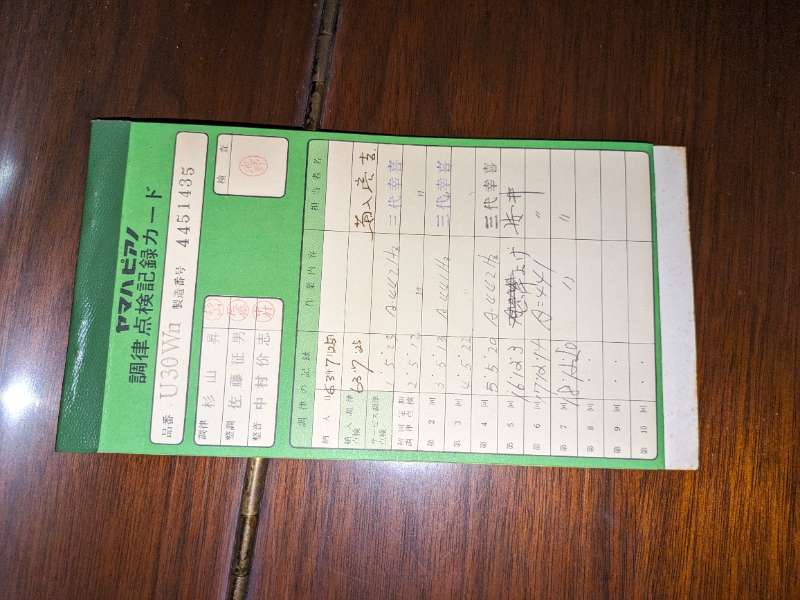 ヤマハピアノ
調律点検記録カード
品番 U30Wn 製造番号 4451435
調律 杉山 昇
整調 佐藤征男
整音 中村价志
検査
調律の記録 作業内容 担当者名
納入日 63年7月25日
納入調律点検 63.7.25
サービス調律点検 1.5.23 A-442Hz 三代幸喜
初回定期調律点検 2.5.12 〃 〃
第2回 3.5.13 A-441Hz 三代幸喜
第3回 4.5.22
第4回 5.5.20 A-442Hz 三代幸喜
第5回 16.12.3
第6回 17.12.14 A=441 〃
第7回 〃 〃
第8回
第9回
第10回